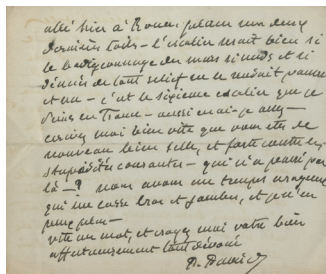 allé hier à Rouen placer mes deux
dernières toiles – l'escalier serait bien si
le badigeonnage des murs si nuds et si
dénués de tout relief ne le rendait pauvre
et nu – c'est le sixième escalier que je
– aussi
moi bien vite que vous êtes de
nouveau bien belle, et forte contre les
stupidités courantes – qui n'a passé par
là – ? nous avons un temps orageux
qui me casse bras et jambes, et je n'en
peux plus –
vite un mot, et croyez moi votre bien
affectueusement tout dévoué